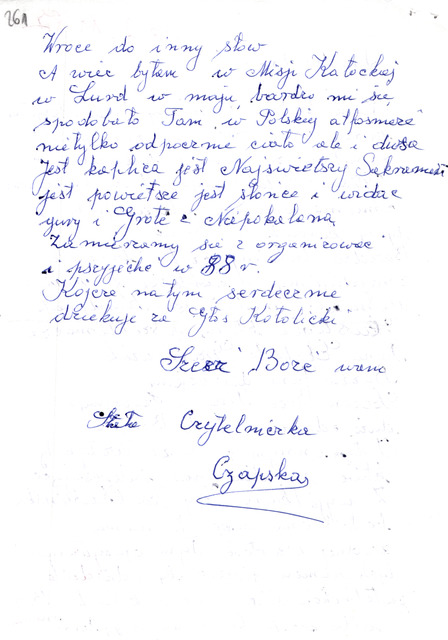 261
Wroce do inny słow
A wiec byłam w Misji Katockiej
w Lurd w maju bardzo mi sie
spodobało Tam w Polskiej atfosmeze
nietylko odpocznie ciało ale i dusza
Jest kaplica jest Najswietszy Sakrament
jest powietsze jest słońce i widac
gury i Grote z Niepokalaną
Zamierzamy sie z organizowac
i przyjéchć w 88 r.
Kojcze natym serdecznie
dziekuji za Głos Katolicki
Szczesć Boże wam
Stała Czytelnierka
Czapska